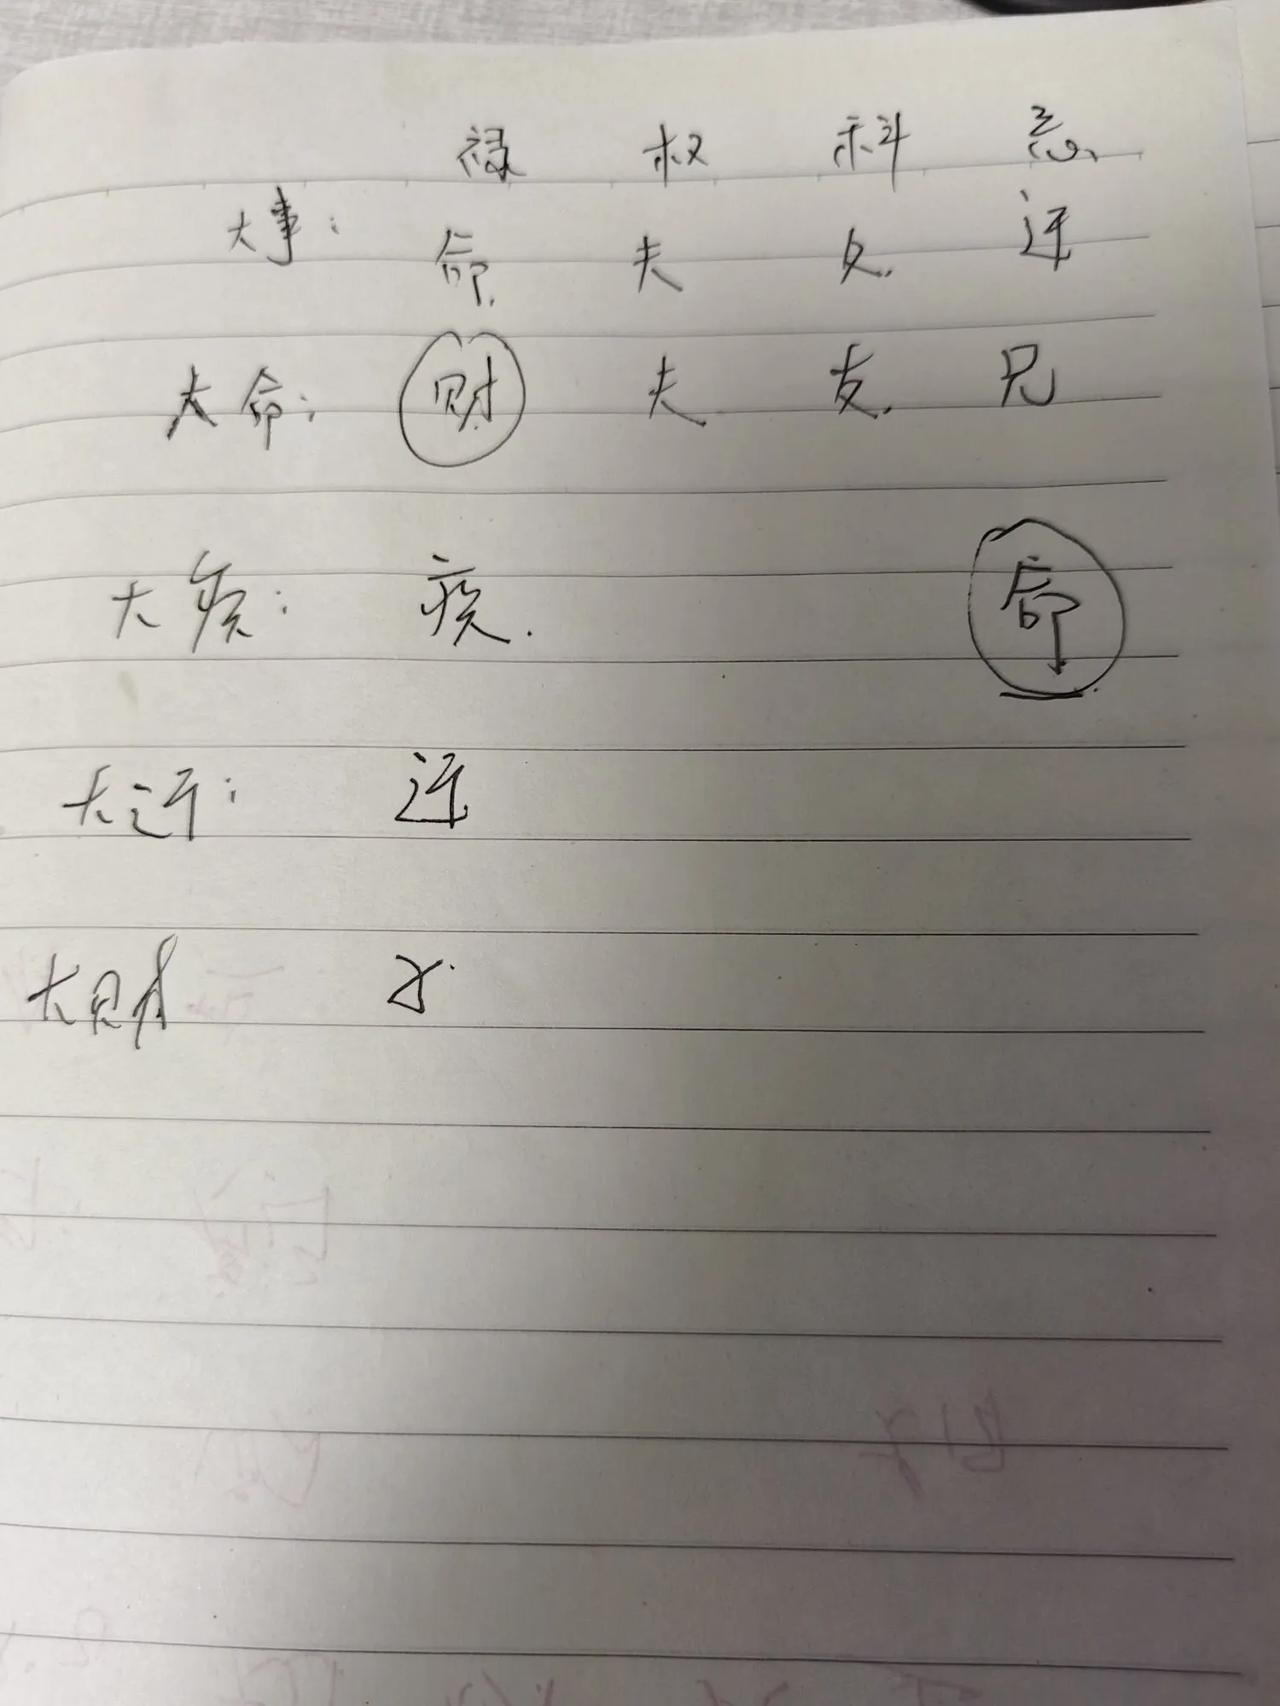 禄 权 科 忌
大事: 命. 夫 父. 迁
大命: 财 夫 友. 兄
大疾: 疾. 命
大迁: 迁
大财